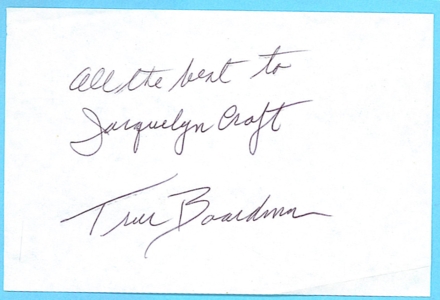 All the best to
Jacquelyn Craft
True Boardman